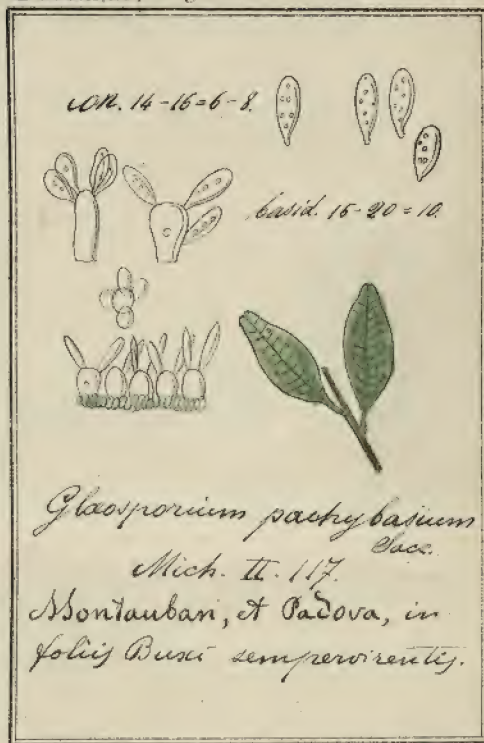 con. 14-16=6-8.
basid. 15-20=10.
Gloeosporium pachybasium
Sacc.
Mich. II. 117.
Montauban, et Padova, in
foliis Buxi sempervirentis.